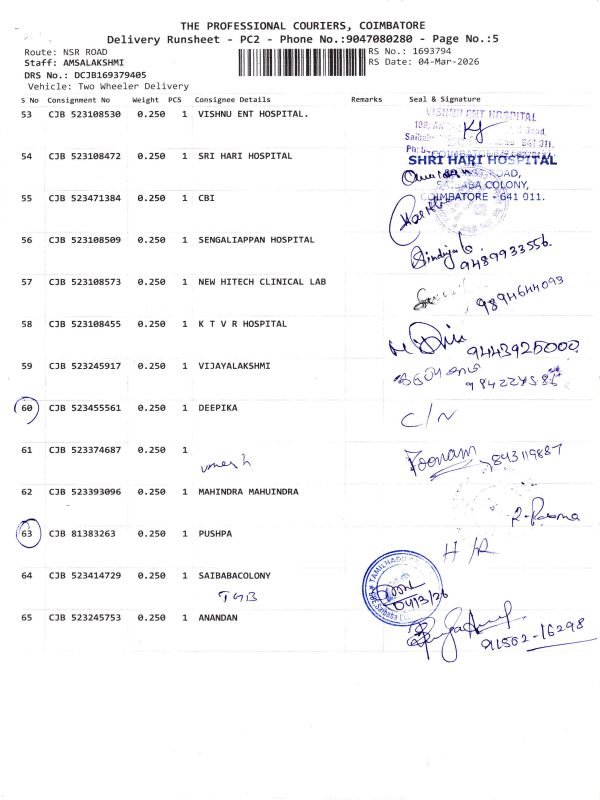 THE PROFESSIONAL COURIERS, COIMBATORE
Delivery Runsheet - PC2 - Phone No.:9047080280 - Page No.:5
Route: NSR ROAD RS No.: 1693794
Staff: AMSALAKSHMI RS Date: 04-Mar-2026
DRS No.: DCJB169379405
Vehicle: Two Wheeler Delivery
S No Consignment No Weight PCS Consignee Details Remarks Seal & Signature
53 CJB 523108530 0.250 1 VISHNU ENT HOSPITAL. VISHNU ENT HOSPITAL
54 CJB 523108472 0.250 1 SRI HARI HOSPITAL SHRI HARI HOSPITAL
ROAD,
SAIBABA COLONY,
55 CJB 523471384 0.250 1 CBI COIMBATORE - 641 011.
56 CJB 523108509 0.250 1 SENGALIAPPAN HOSPITAL
9489933556
57 CJB 523108573 0.250 1 NEW HITECH CLINICAL LAB 9894644093
58 CJB 523108455 0.250 1 K T V R HOSPITAL
9443925000
59 CJB 523245917 0.250 1 VIJAYALAKSHMI
60 CJB 523455561 0.250 1 DEEPIKA C/N
61 CJB 523374687 0.250 1 Poonam 843119887
umesh
62 CJB 523393096 0.250 1 MAHINDRA MAHUINDRA
63 CJB 81383263 0.250 1 PUSHPA H/R
64 CJB 523414729 0.250 1 SAIBABACOLONY TAMILNADU
TGB 04/3/26
65 CJB 523245753 0.250 1 ANANDAN
91502-16298